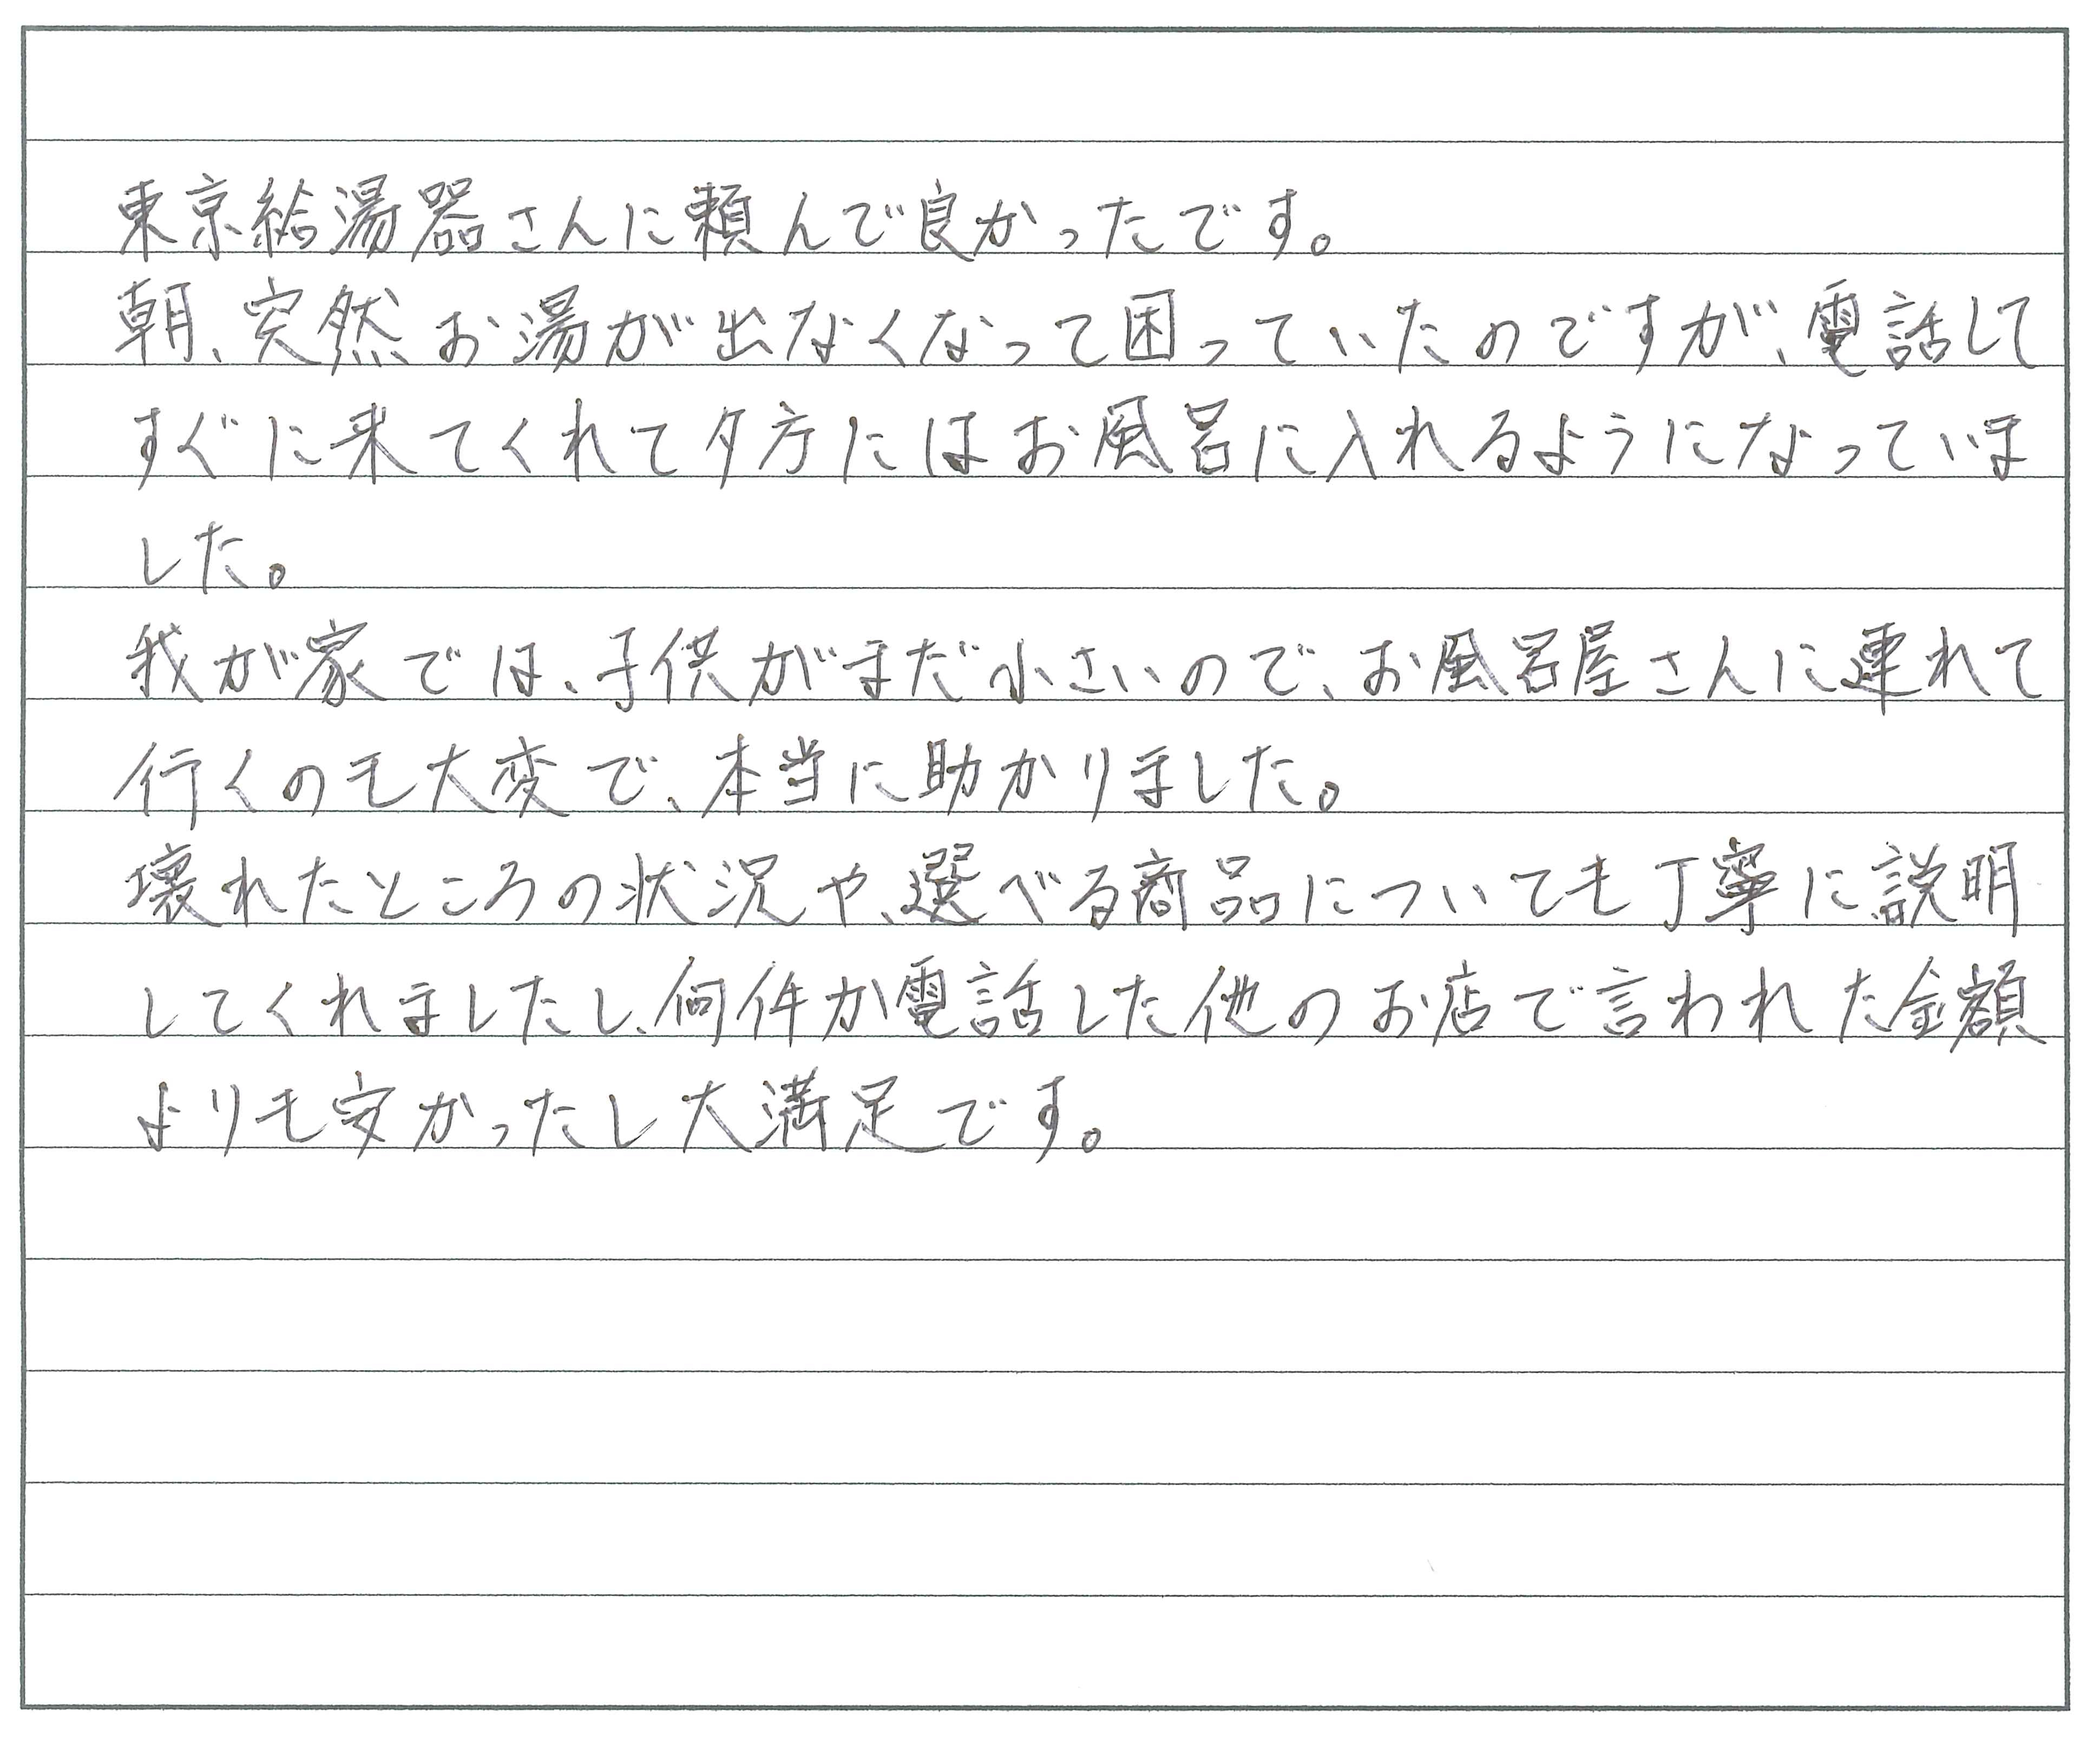 東京給湯器さんに頼んで良かったです。
朝、突然お湯が出なくなって困っていたのですが、電話して
すぐに来てくれて夕方にはお風呂に入れるようになっていま
した。
我が家では、子供がまだ小さいので、お風呂屋さんに連れて
行くのも大変で、本当に助かりました。
壊れたところの状況や、選べる商品についても丁寧に説明
してくれましたし、何件か電話した他のお店で言われた金額
よりも安かったし大満足です。